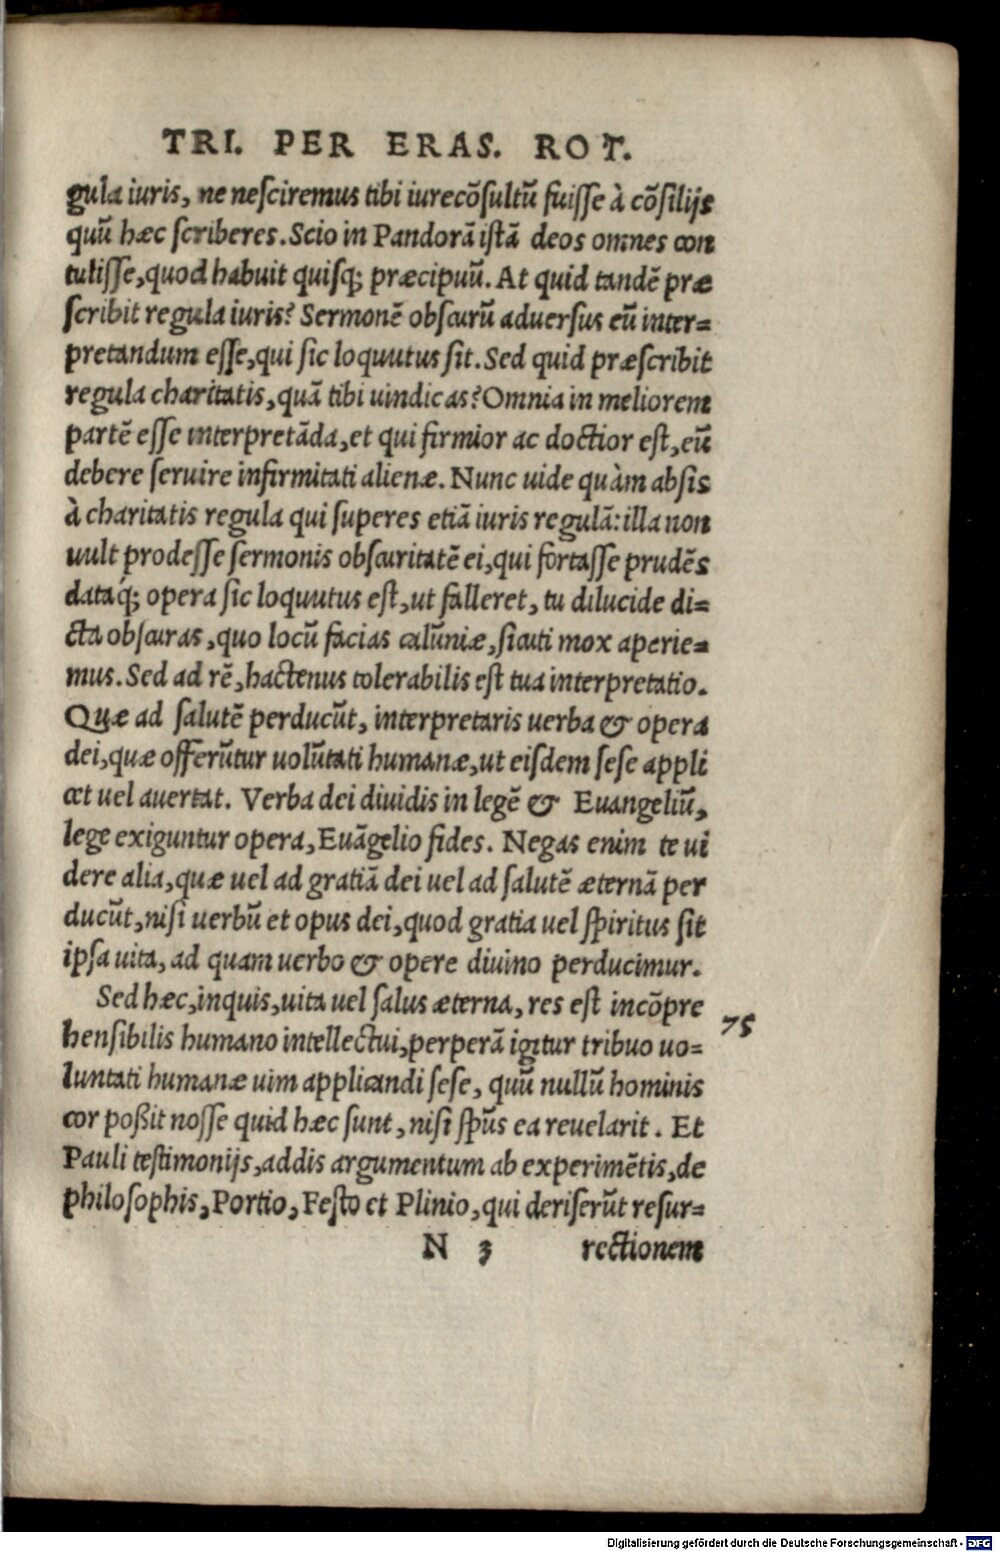 TRI. PER ERAS. ROT.
gula iuris, ne nesciremus tibi iurecõsultũ fuisse à cõsilijs
quũ hæc scriberes. Scio in Pandorã istã deos omnes con
tulisse, quod habuit quisq; præcipuũ. At quid tandẽ præ
scribit regula iuris? Sermonẽ obscurũ aduersus eũ inter=
pretandum esse, qui sic loquutus sit. Sed quid præscribit
regula charitatis, quã tibi uindicas? Omnia in meliorem
partẽ esse interpretãda, et qui firmior ac doctior est, eũ
debere seruire infirmitati alienæ. Nunc uide quàm absis
à charitatis regula qui superes etiã iuris regulã: illa non
uult prodesse sermonis obscuritatẽ ei, qui fortasse prudẽs
dataq́; opera sic loquutus est, ut falleret, tu dilucide di=
cta obscuras, quo locũ facias calũniæ, sicuti mox aperie=
mus. Sed ad rẽ, hactenus tolerabilis est tua interpretatio.
Quæ ad salutẽ perducũt, interpretaris uerba & opera
dei, quæ offerũtur uolũtati humanæ, ut eisdem sese appli
cet uel auertat. Verba dei diuidis in legẽ & Euangeliũ,
lege exiguntur opera, Euãgelio fides. Negas enim te ui
dere alia, quæ uel ad gratiã dei uel ad salutẽ æternã per
ducũt, nisi uerbũ et opus dei, quod gratia uel spiritus sit
ipsa uita, ad quam uerbo & opere diuino perducimur.
Sed hæc, inquis, uita uel salus æterna, res est incõpre
75
hensibilis humano intellectui, perperã igitur tribuo uo=
luntati humanæ uim applicandi sese, quũ nullũ hominis
cor poßit nosse quid hæc sunt, nisi sp̃us ea reuelarit. Et
Pauli testimonijs, addis argumentum ab experimẽtis, de
philosophis, Portio, Festo et Plinio, qui deriserũt resur=
N 3 rectionem
Digitalisierung gefördert durch die Deutsche Forschungsgemeinschaft - DFG